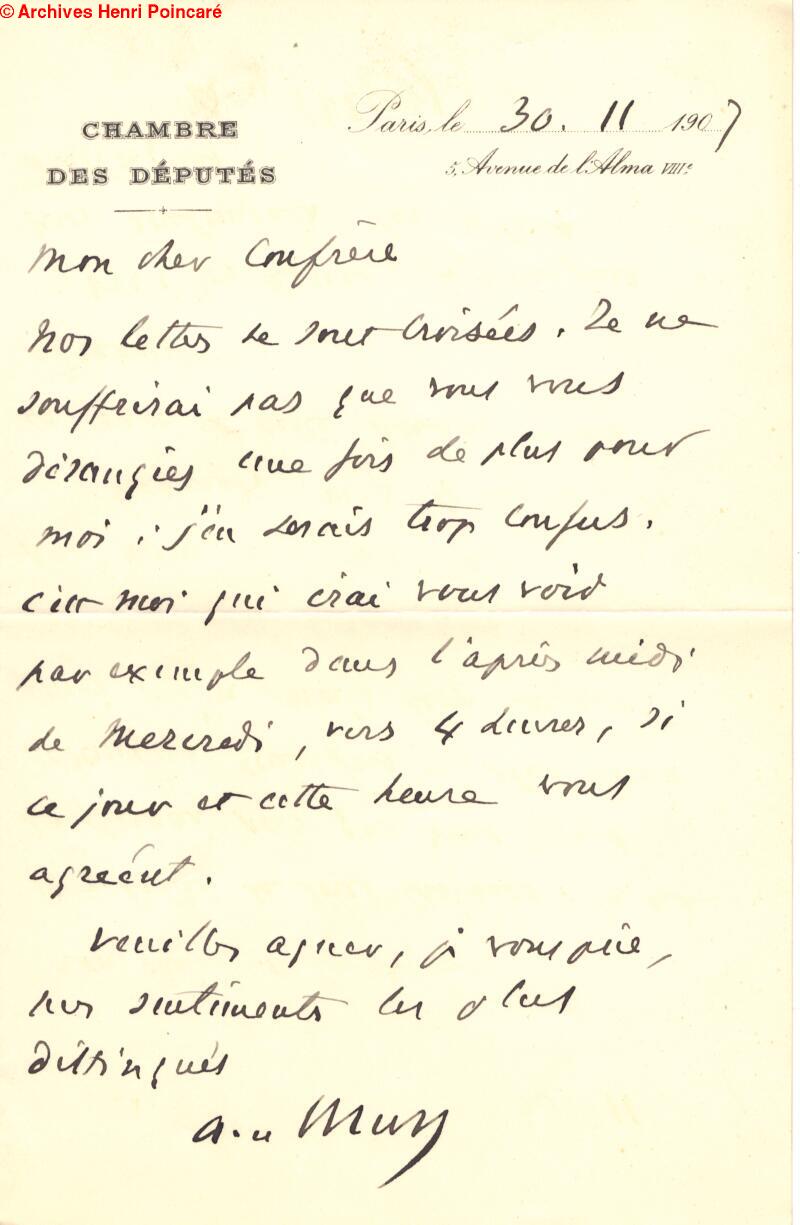 © Archives Henri Poincaré
CHAMBRE
DES DÉPUTÉS
Paris, le 30. 11 1907
5, Avenue de l'Alma VIIIe
Mon cher Confrère
Nos lettres se sont croisées. Je ne
souffrirai pas que vous vous
dérangiez une fois de plus pour
moi : j'en serais trop confus.
C'est moi qui irai vous voir
par exemple dans l'après midi
de Mercredi, vers 4 heures, si
ce jour et cette heure vous
agréent.
Veuillez agréer, je vous prie,
mes sentiments les plus
distingués
A. de Mun